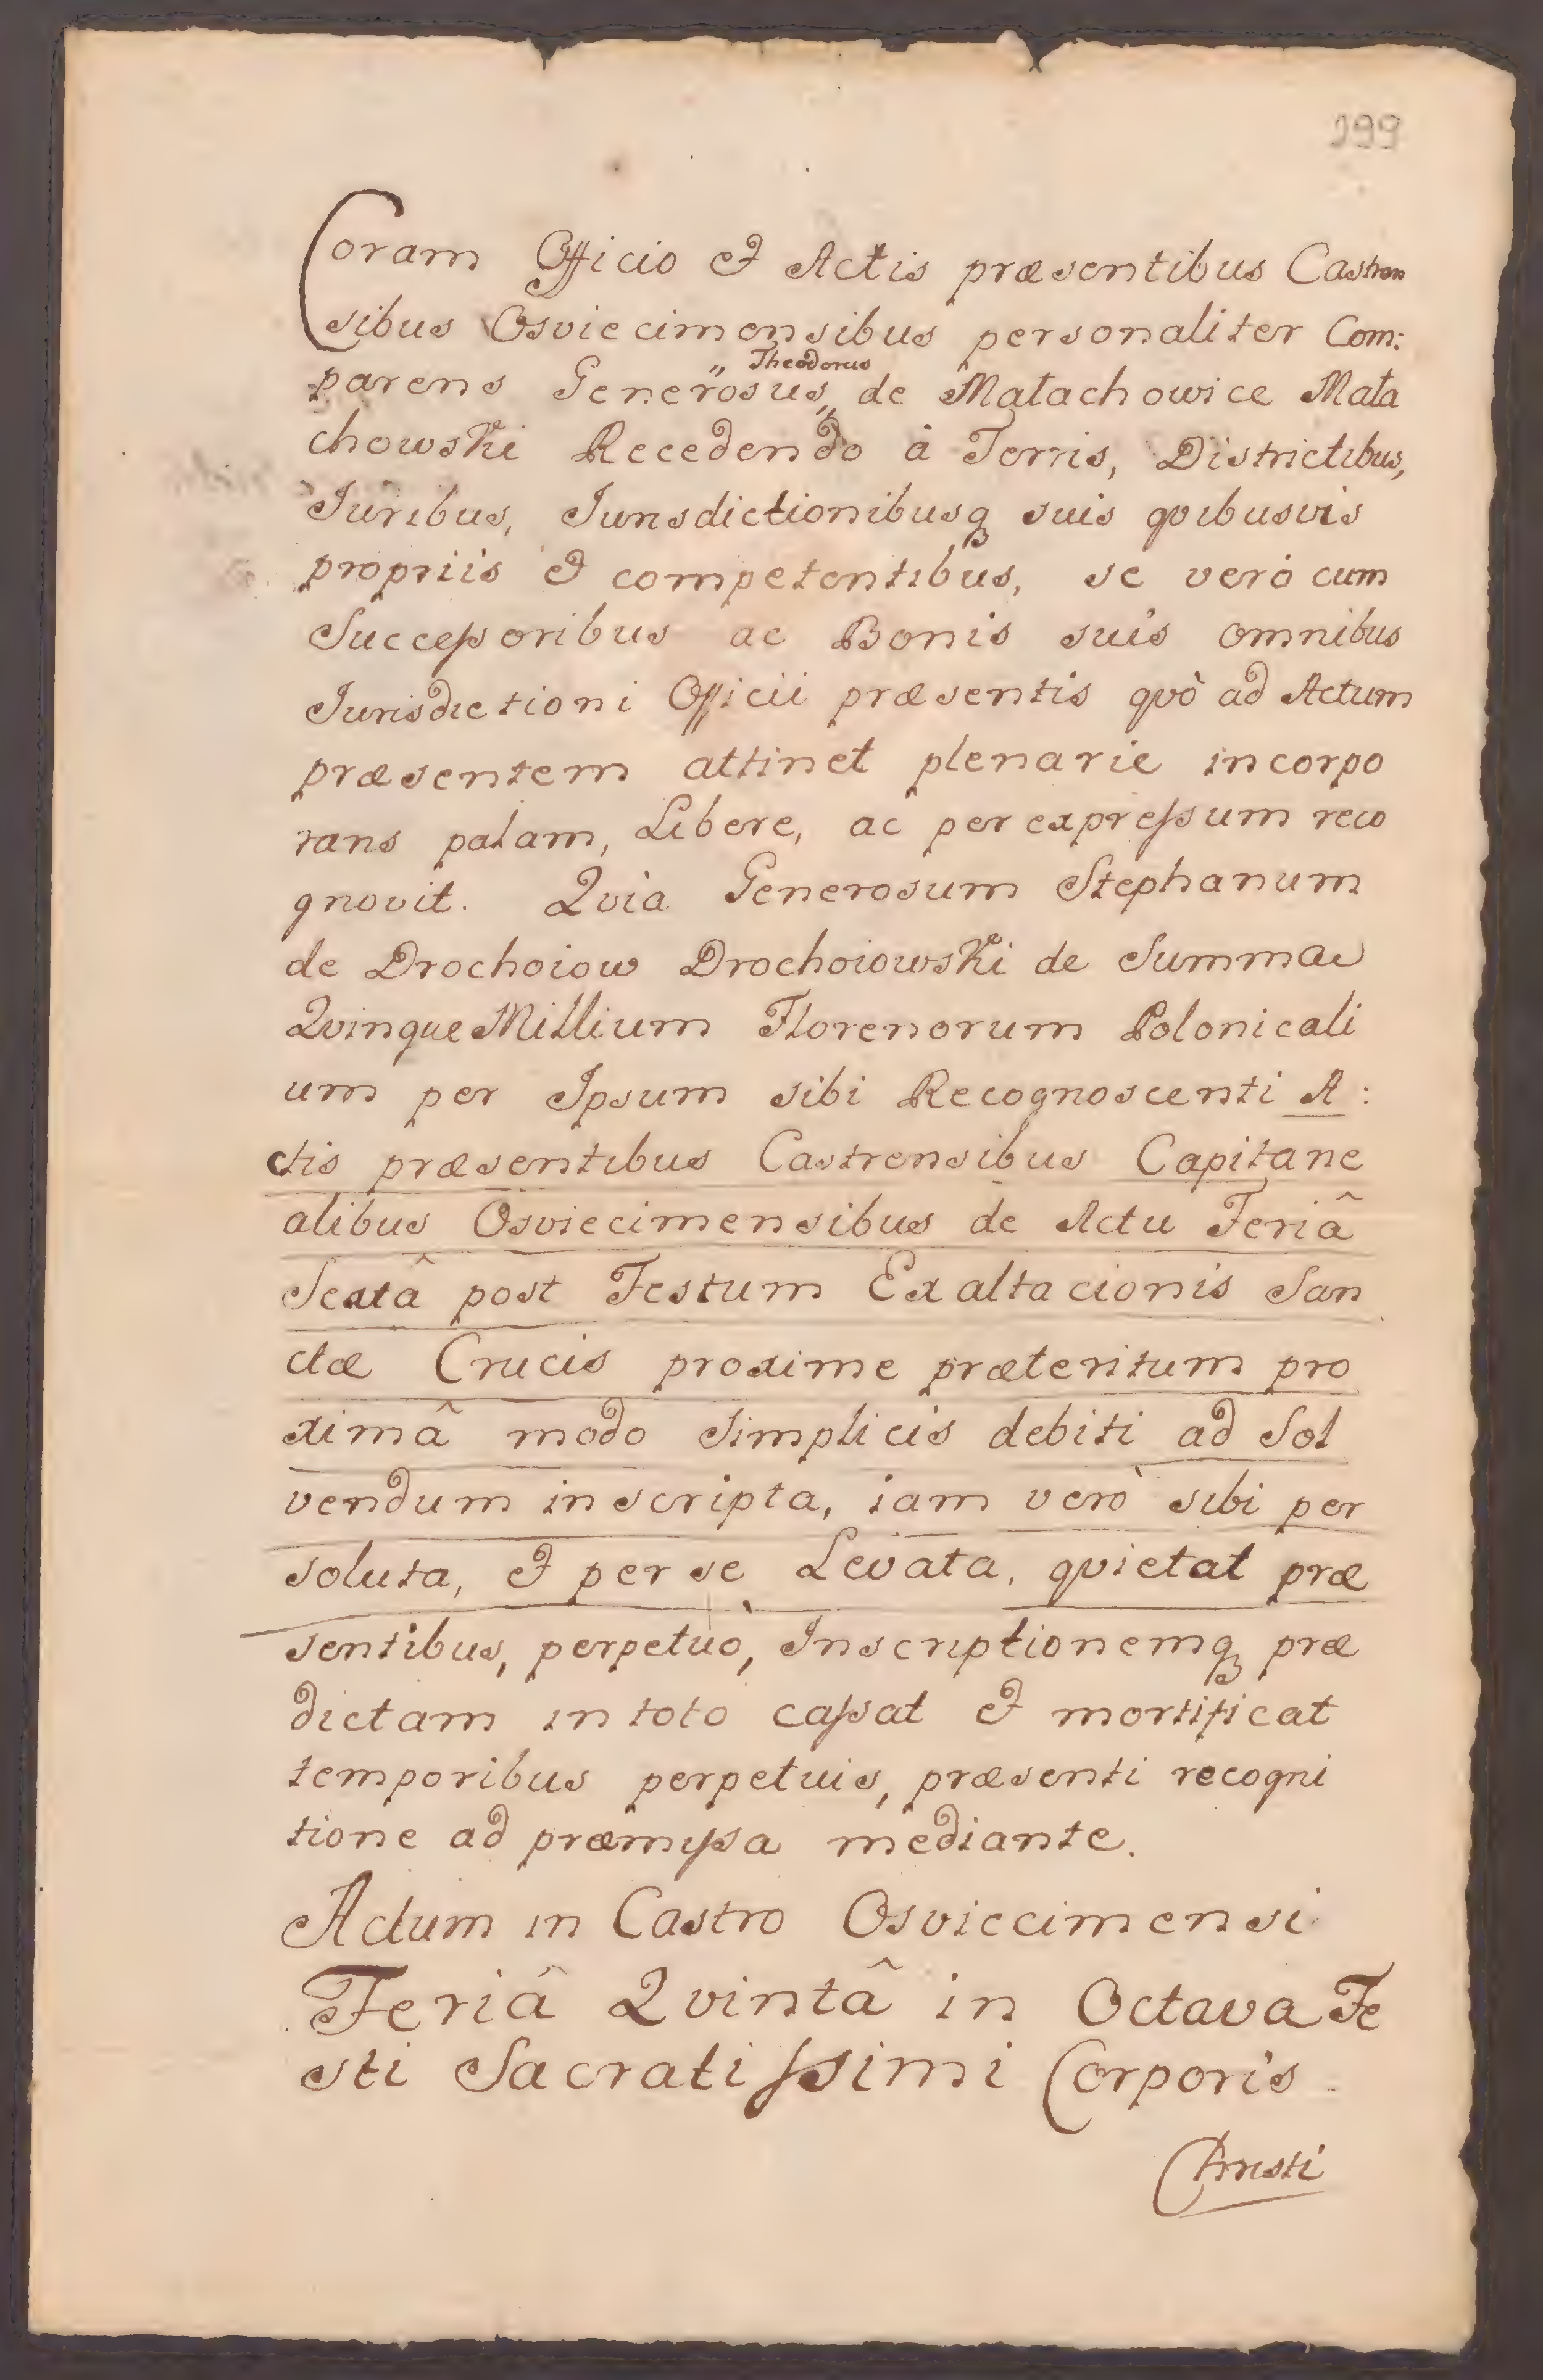 199
Coram Officio et Actis præsentibus Castren
sibus Osviecimensibus personaliter Com:
„ Theodorus
parens Generosus„ de Małachowice Mała
chowski Recedendo à Terris, Districtibus,
Iuribus, Iurisdictionibusq suis qvibusvis
propriis et competentibus, se verò cum
Succeſsoribus ac Bonis suis omnibus
Iurisdictioni Officii præsentis qvò ad Actum
præsentem attinet plenarie incorpo
rans palam, Libere, ac per expreſsum reco
gnovit. Qvia Generosum Stephanum
de Drochoiow Drochoiowski de Summa
Qvinque Millium Florenorum Polonicali
um per Ipsum sibi Recognoscenti A:
ctis præsentibus Castrensibus Capitane
alibus Osviecimensibus de Actu Feriâ
Sextâ post Festum Exaltacionis San
ctæ Crucis proxime præteritum pro
ximâ modo simplicis debiti ad Sol
vendum inscripta, iam verò sibi per
soluta, et per se Levata, qvietat præ
sentibus, perpetuò, Inscriptionemq præ
dictam in toto caſsat et mortificat
temporibus perpetuis, præsenti recogni
tione ad præmiſsa mediante.
Actum in Castro Osviecimensi
Feriâ Qvintâ in Octava Fe
sti Sacratiſsimi Corporis
Christi